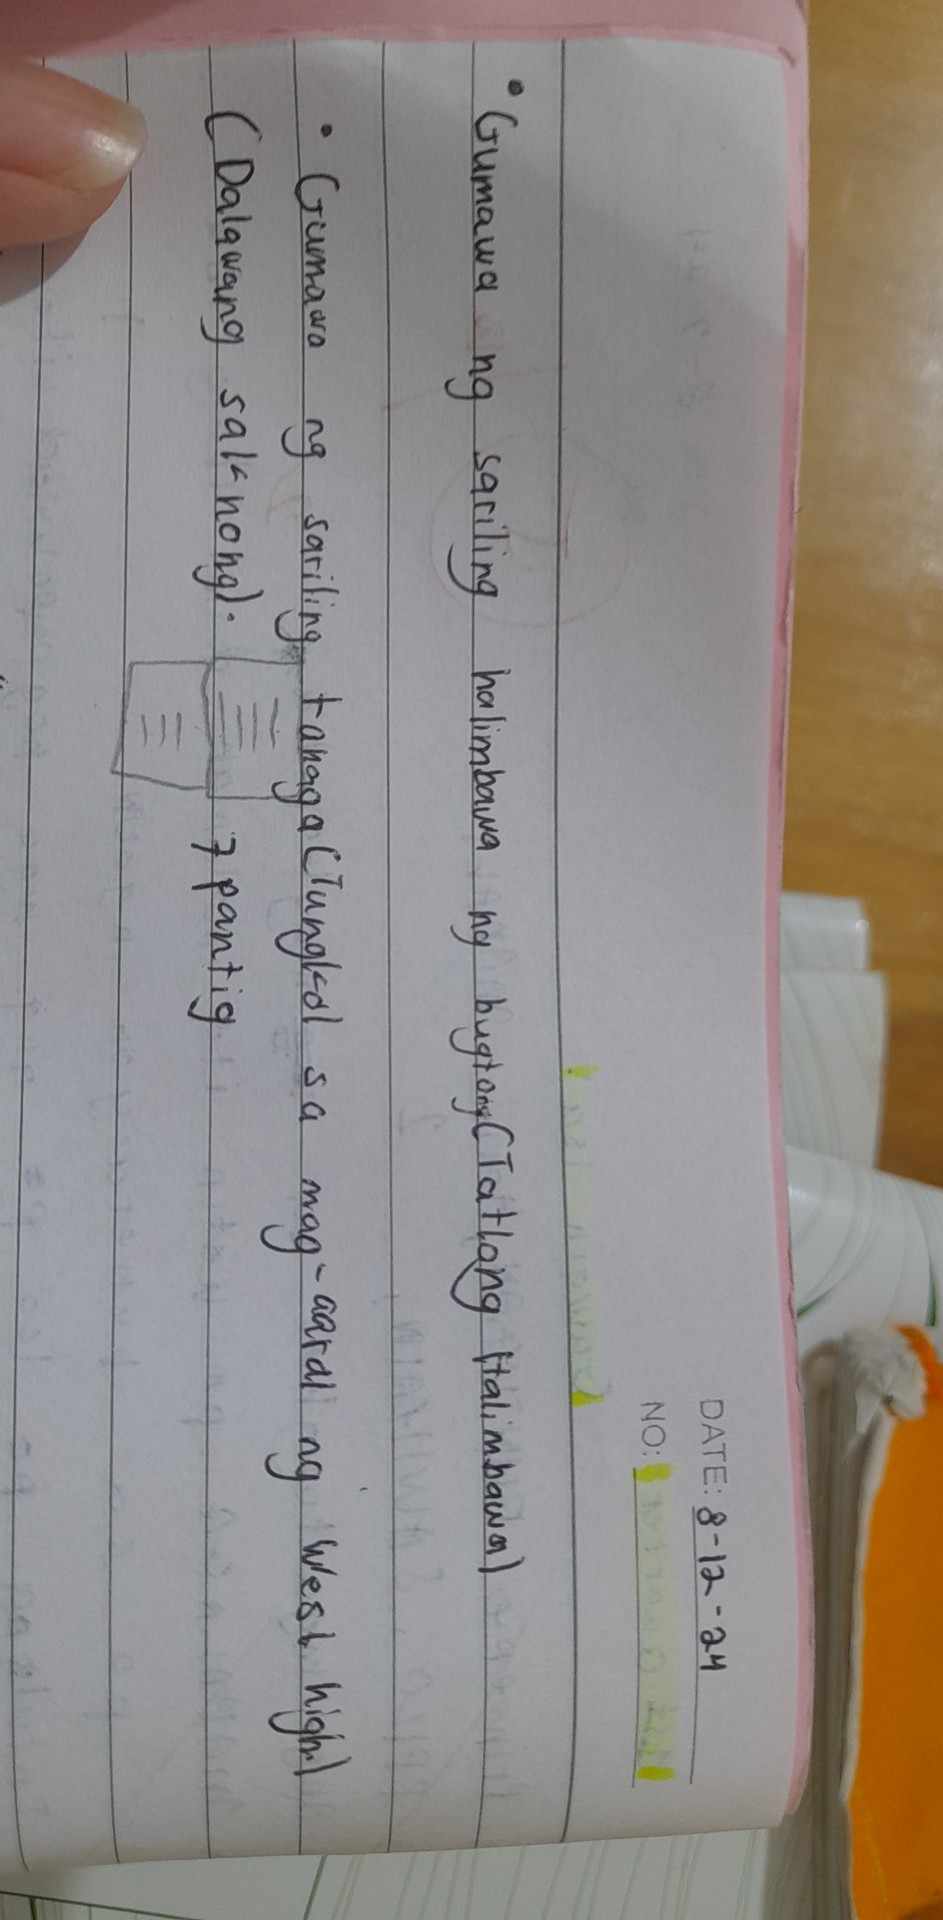 DATE: 8-12-24
NO:
• Gumawa ng sariling halimbawa ng bugtong (Tatlong Halimbawa)
• Gumawa ng sariling tanaga (Tungkol sa mag-aaral ng West high)
(Dalawang saknong).
7 pantig